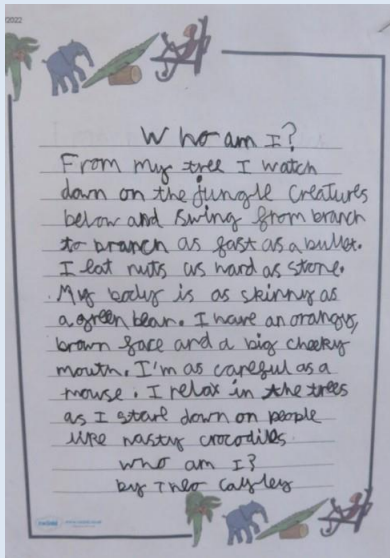 /2022
Who am I?
From my tree I watch
down on the jungle creatures
below and swing from branch
to branch as fast as a bullet.
I eat nuts as hard as stone.
My body is as skinny as
a green bean. I have an orangy,
brown face and a big cheeky
mouth. I'm as careful as a
mouse. I relax in the trees
as I stare down on people
like nasty crocodiles.
who am I?
by Theo Cayley